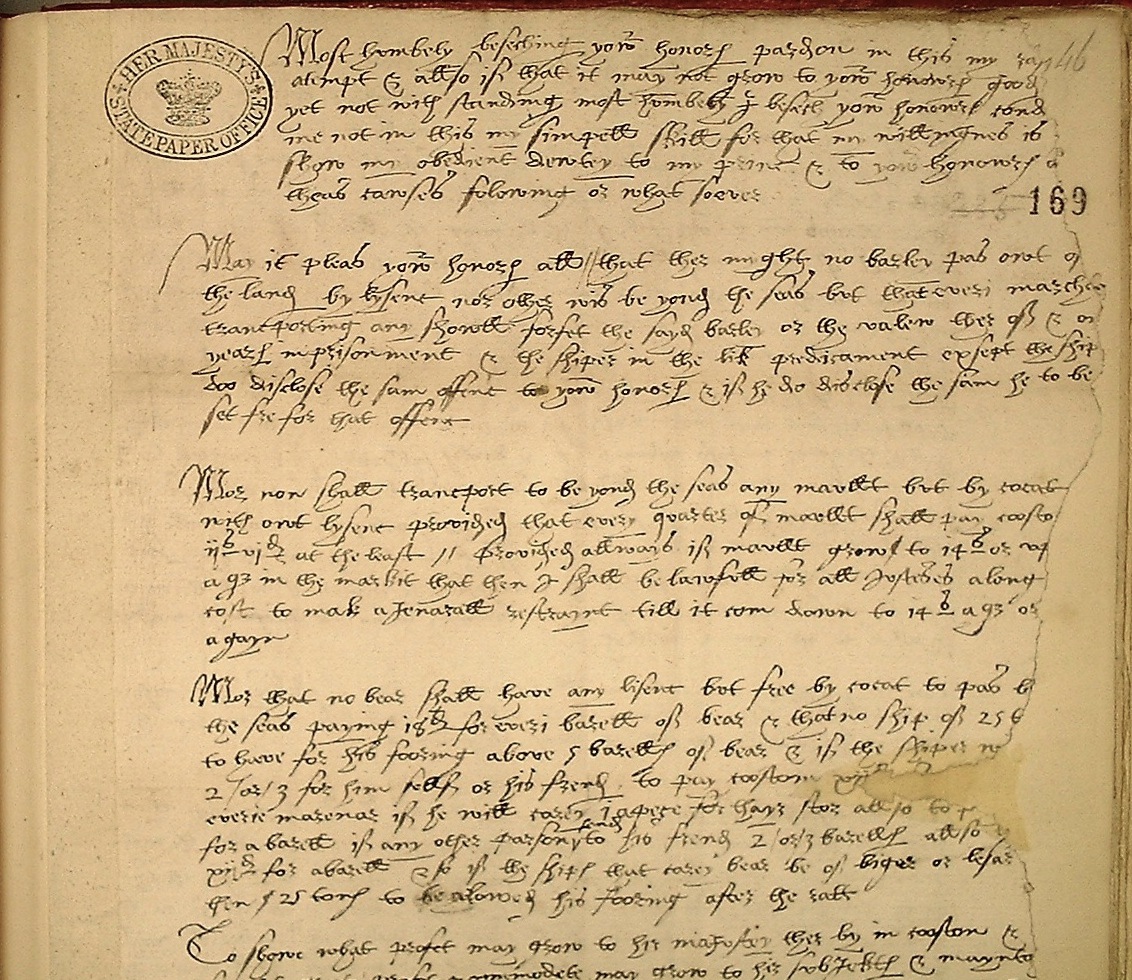 HER MAJESTY'S
STATE PAPER OFFICE
46
Most hombely beseching yowr honors pardon in this my
atempt & allso if that it may not grow to yowr honowrs good
yet not with standing most hombely I besech yowr honowrs cond
me not in this my simpell skill for that my willingnes is
show my obedient dewtey to my prince & to yowr honowrs
theas cawses folowing or what soever
169
May it pleas yowr honors all // that ther myght no barley pas owt of
the land by lysenc nor other wis be yond the seas but that everi
trancporting any showlld forfet the sayd barley or the valew ther of &
years inprisonment & the shiper in the lik predicament exsept the ship
doo disclose the sam offenc to yowr honors & if he do disclose the sam he to be
set fre for that offenc
Mor non shall trancport to be yond the seas any mawllt but by cocat
with owt lysenc provided that every quarter of mawllt shall pay coosto
ijs vjd at the least // provided allwais if mawllt grow to 14s or
a qr in the markit that then it shall be lawfull for all Justeses along
cost to mak a Jenarall restraint till it com down to 14s a qr or
agayn
Mor that no bear shall have any lisenc but free by cocat to pas
the seas paying 18d for everi barell of bear & that no ship of 25
to have for his fooring above 5 barells of bear & if the shiper
2 / or / 3 for him sellf or his frend to pay coostom xijd
everie marenar if he will carey 1 a pece for thayr stor allso to
for a barell if any other parson send to his frend 2 / or / 3 barells allso
xijd for a barell & so if the ships that carey bear be of biger or lesar
then 25 tons to be alowed his fooring after the ratt
To showe what profet may grow to hir majestey ther by in coostom &
may grow to hir subJekts & maynt